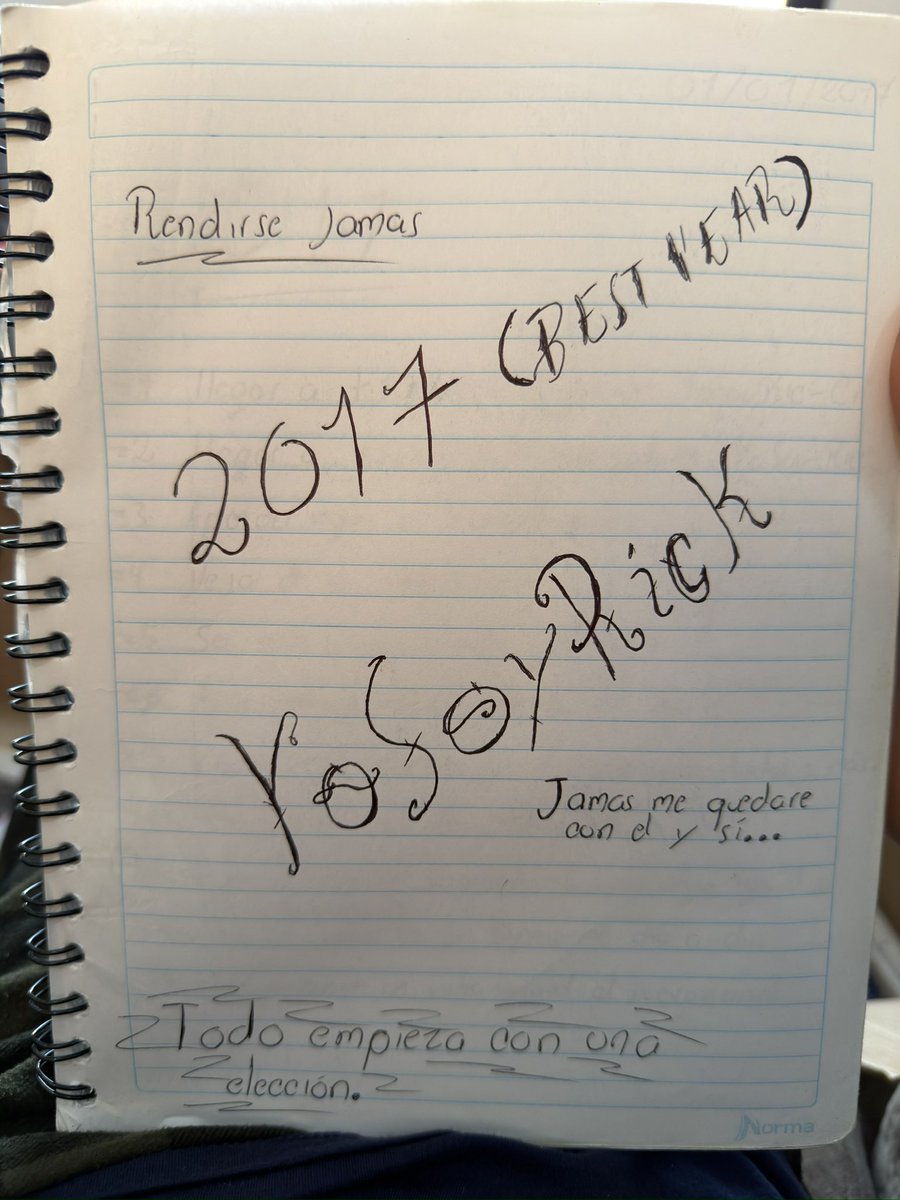 Rendirse Jamas
2017 (BEST YEAR)
Yo Soy Rick
Jamas me quedare
con el y si...
Todo empieza con una
elección.
Norma